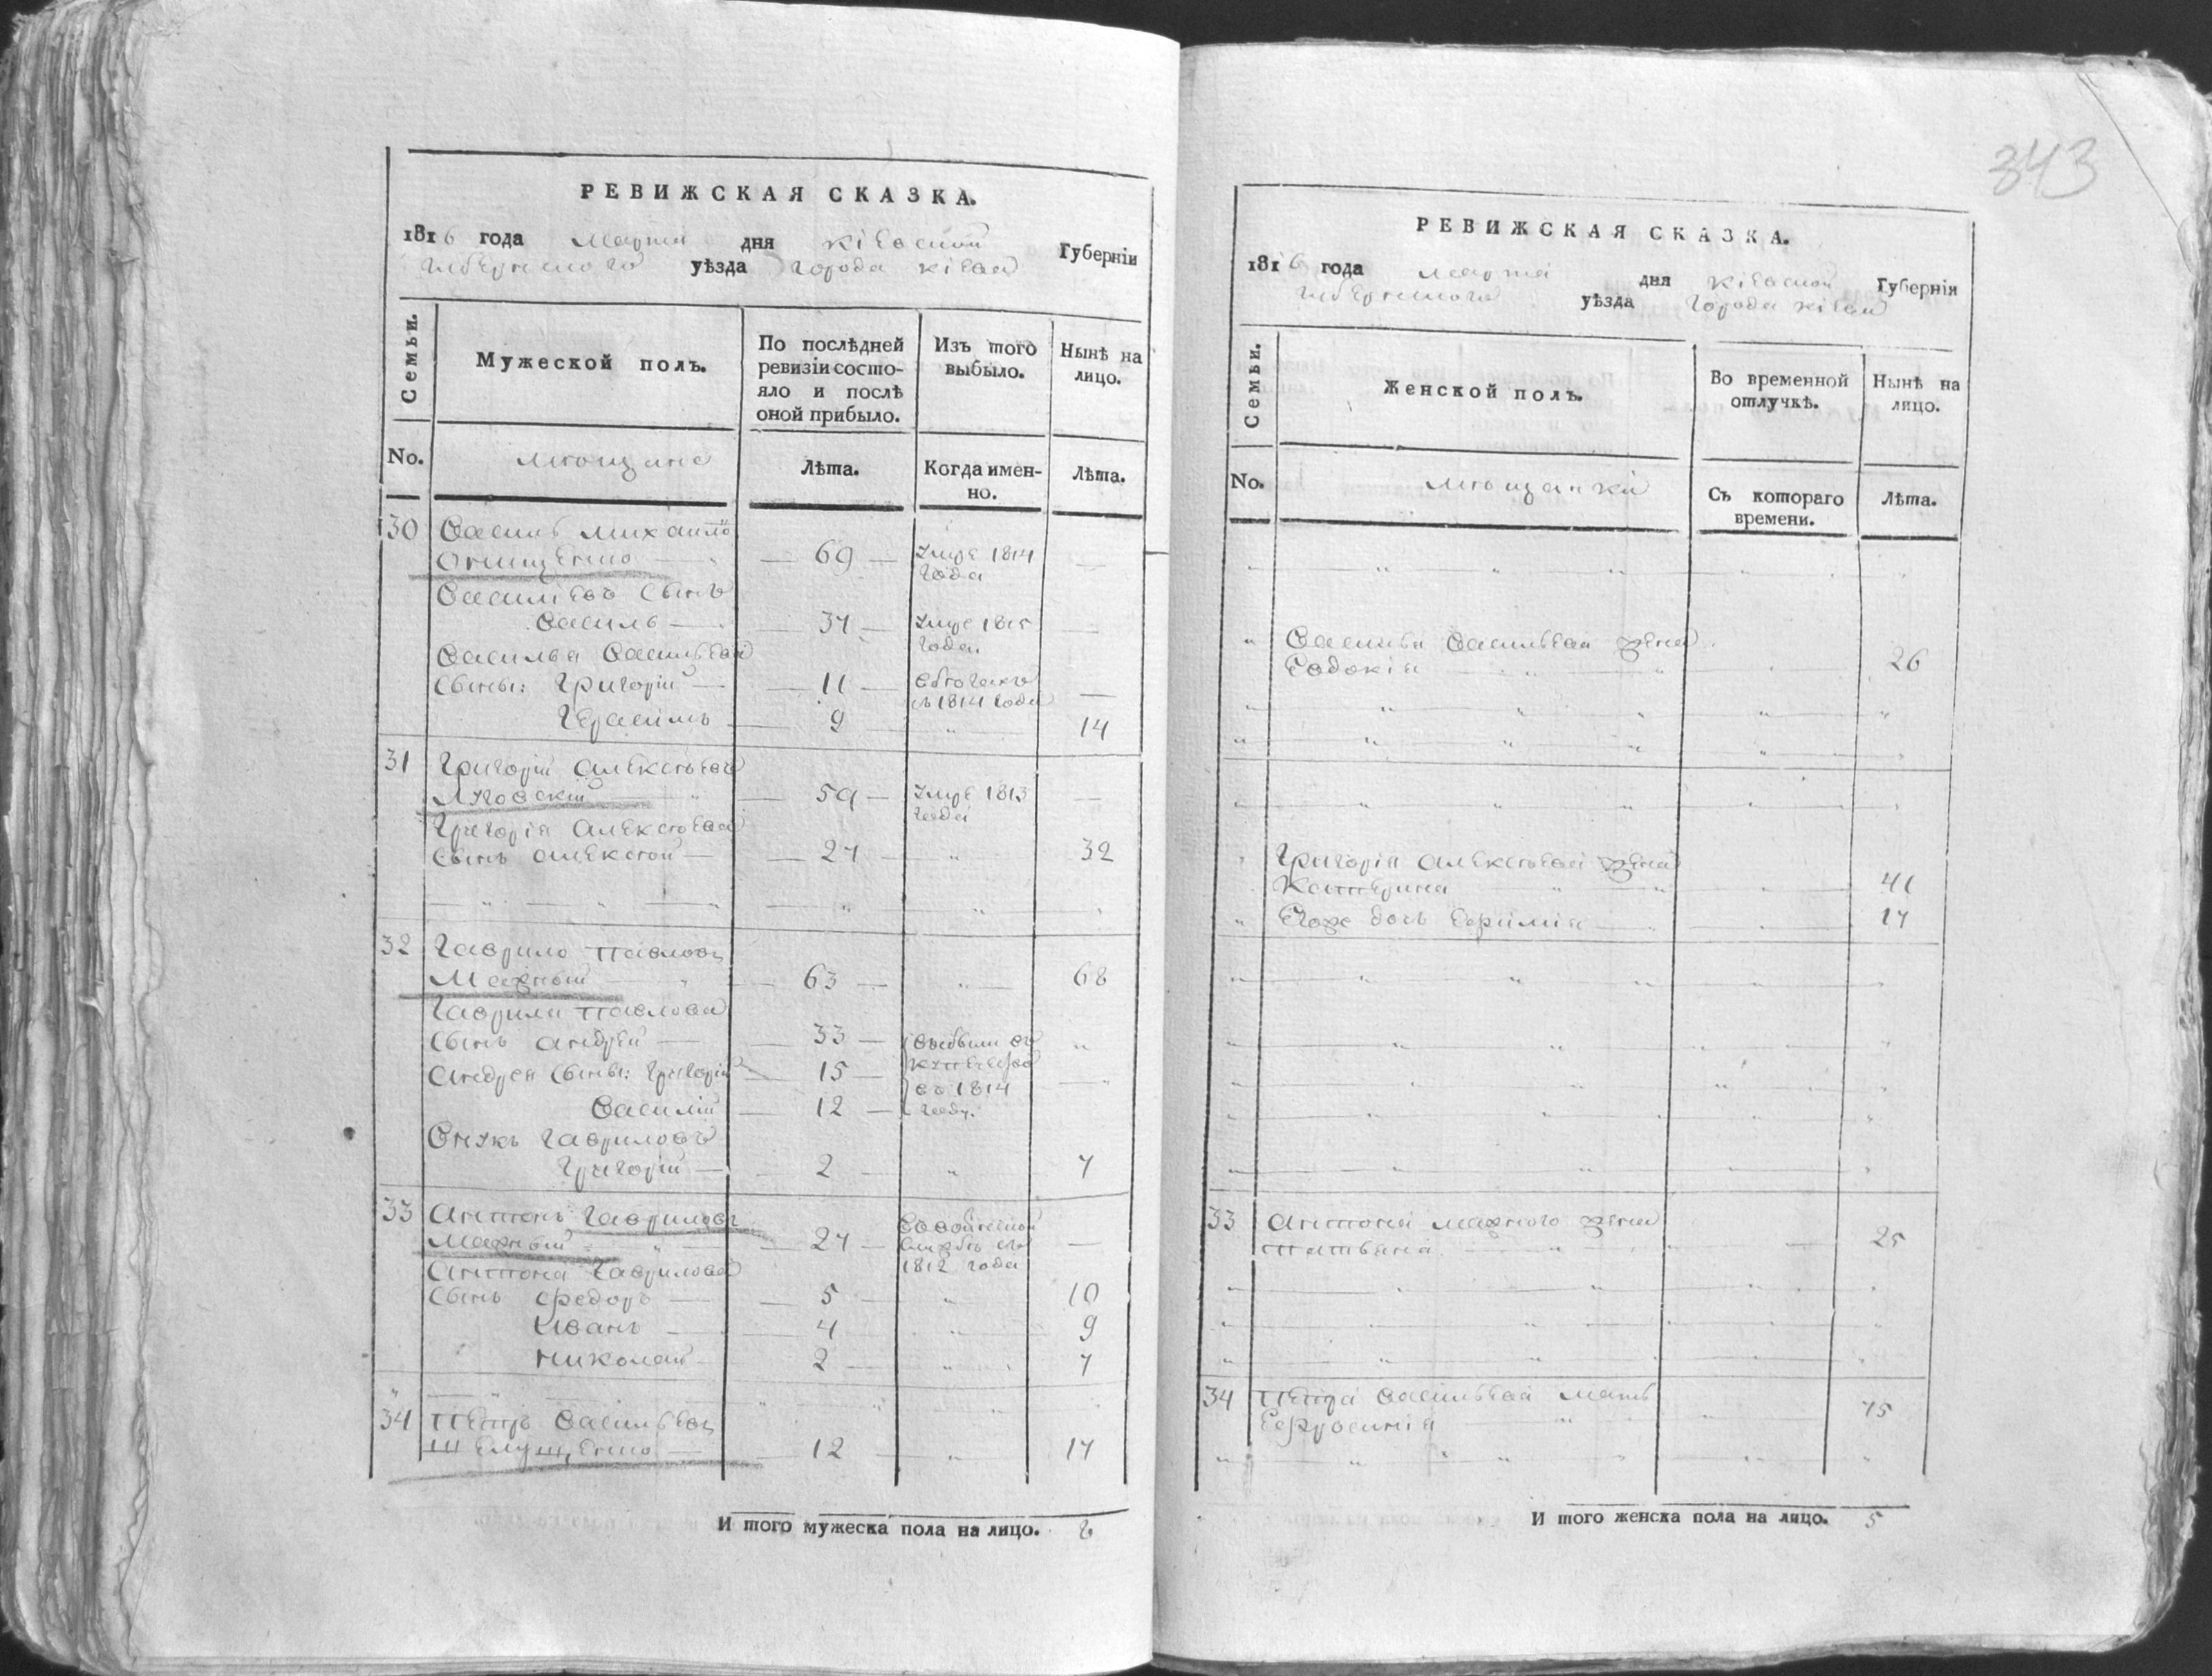 343
РЕВИЖСКАЯ СКАЗКА.
1816 года Марта дня Кіевской Губерніи
уѣзда города Кіева
Семьи.
Мужеской полъ.
По послѣдней
ревизіи состо-
яло и послѣ
оной прибыло.
Изъ того
выбыло.
Нынѣ на
лицо.
No.
мѣщане
Лѣта.
Когда имен-
но.
Лѣта.
30 Василь Михайло
Онищенко — 69 — Умре 1814 —
года
Васильевъ сынъ
Василь — 37 — Умре 1815 —
года
Василья Васильева
сыны: Григорій — 11 — въ бѣгахъ
съ 1814 года —
Герасимъ — 9 — 14
31 Григорій Алексѣевъ
Луговскій — 59 — Умре 1813 —
года
Григорія Алексѣева
сынъ Алексѣй — 27 — 32
32 Гаврило Павловъ
Мажный — 63 — 68
Гаврила Павлова
сынъ Андрей — 33 — выбыли въ
Андрея сыны: Григорій — 15 —
въ 1814
Василій — 12 — году.
Внукъ Гавриловъ
Григорій — 2 — 7
33 Антонъ Гавриловъ
Мажный — 27 — службѣ съ —
1812 года
Антона Гаврилова
сынъ Федоръ — 5 — 10
Иванъ — 4 — 9
Николай — 2 — 7
34 Петръ Васильевъ
Шелущенко — 12 — 17
И того мужеска пола на лицо. 8
РЕВИЖСКАЯ СКАЗКА.
1816 года Марта дня Кіевской Губерніи
уѣзда города Кіева
Семьи.
Женской полъ.
Во временной
отлучкѣ.
Нынѣ на
лицо.
No.
мѣщанки
Съ котораго
времени.
Лѣта.
Василья Васильева жена
Евдокія — 26
Григорія Алексѣева жена
Катерина — 41
Егоже дочь Ефимія — 17
33 Антона Мажного жена
Татьяна — 25
34 Петра Васильева мать
Ефросинія — 75
И того женска пола на лицо. 5